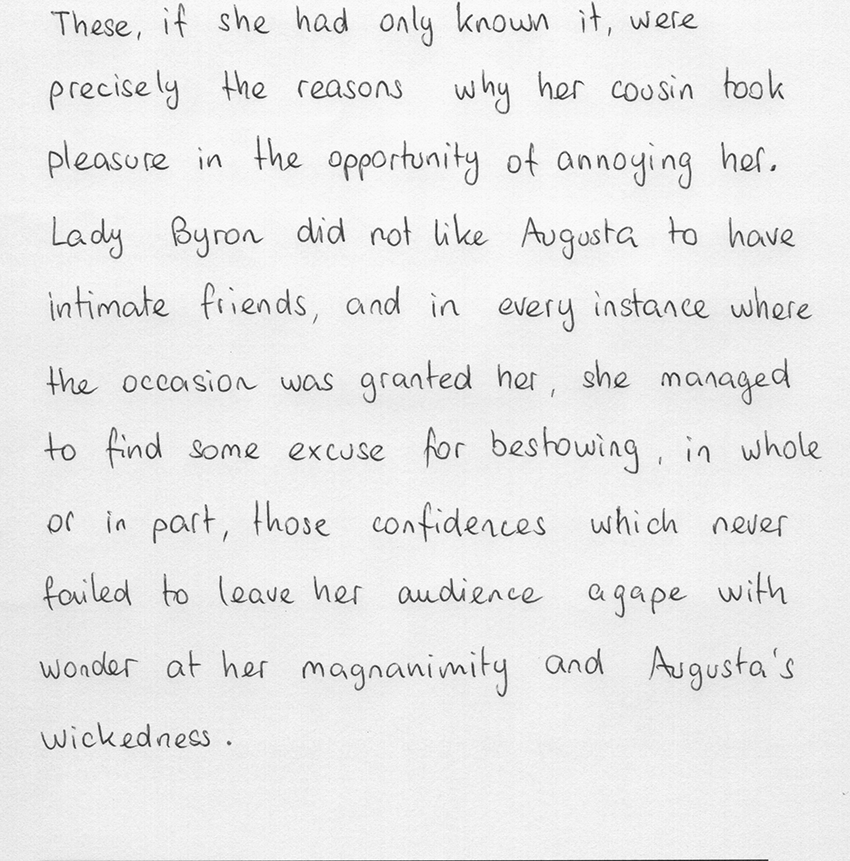 These, if she had only known it, were
precisely the reasons why her cousin took
pleasure in the opportunity of annoying her.
Lady Byron did not like Augusta to have
intimate friends, and in every instance where
the occasion was granted her, she managed
to find some excuse for bestowing, in whole
or in part, those confidences which never
failed to leave her audience agape with
wonder at her magnanimity and Augusta's
wickedness.